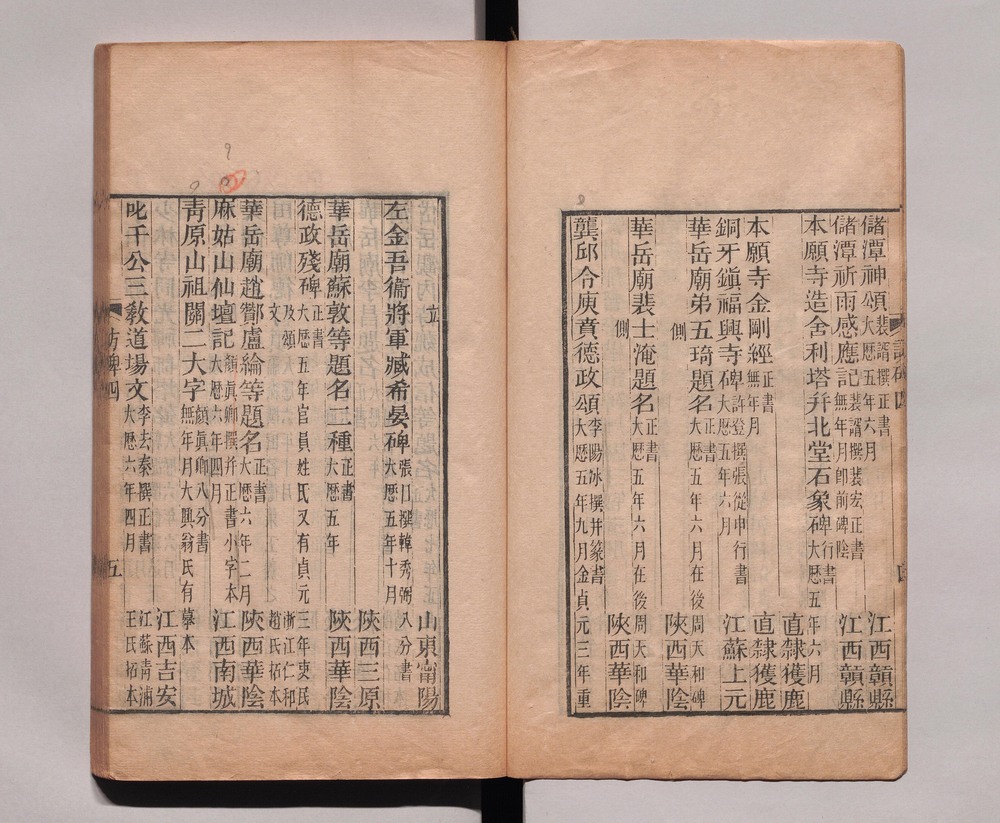 儲潭神頌 裴諝撰正書 大歷五年六月 江西贛縣
儲潭祈雨感應記 裴諝撰裴宏正書 無年月即前碑陰 江西贛縣
本願寺造舍利塔幷北堂石象碑 行書 大歷五年六月 直隸獲鹿
本願寺金剛經 正書 無年月 直隸獲鹿
銅牙鎭福興寺碑 許登撰張從申行書 大歷五年六月 江蘇上元
華岳廟弟五琦題名 正書 大歷五年六月在後周天和碑側 陝西華陰
華岳廟裴士淹題名 正書 大歷五年六月在後周天和碑側 陝西華陰
龔邱令庾賁德政頌 李陽冰撰幷篆書 大歷五年九月金貞元三年重
訪碑四
四
立 山東甯陽
左金吾衞將軍臧希晏碑 張口撰韓秀弼八分書 大歷五年十月 陝西三原
華岳廟蘇敦等題名二種 正書 大歷五年 陝西華陰
德政殘碑 正書 大歷五年官員姓氏又有貞元三年吏民及頌文 浙江仁和趙氏拓本
華岳廟趙酇盧綸等題名 正書 大歷六年二月 陝西華陰
麻姑山仙壇記 顔眞卿撰幷正書小字本 大歷六年四月 江西南城
靑原山祖關二大字 顔眞卿八分書 無年月大興翁氏有摹本 江西吉安
叱干公三敎道場文 李去泰撰正書 大歷六年四月 江蘇靑浦王氏拓本
訪碑四
五